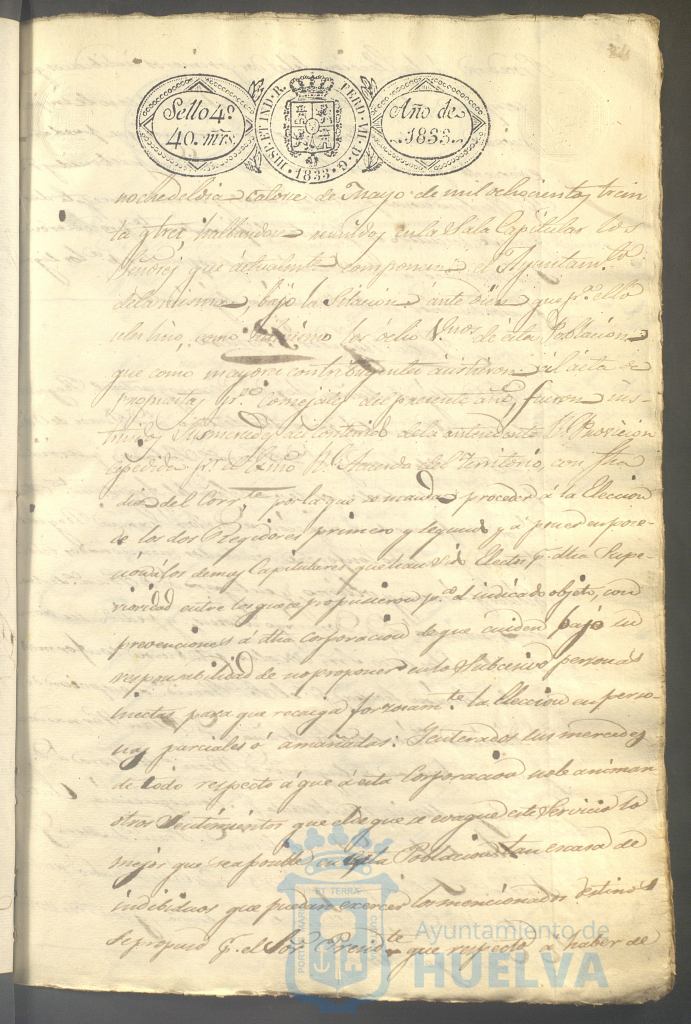 Sello 4º
40. mrs.
HISP. ET IND. R. FERD. VII. D. G. 1833.
Año de
1833.
noche del dia catorce de Mayo de mil ochocientos trein
ta y tres, hallandose reunidos en la Sala Capitular los
Señores que actualmte. componen el Ayuntamto.
de la misma, bajo la Sitacion ante diem que pa. ello
los ocho de esta Poblacion
que como mayores contribuyentes asistieron al acta de
propuesta pa. Consejales del presente año, fueron ins-
truidos Sus mercedes del contenido de la antecedente Provicion
espedida pr. el Acuerdo del Territorio, con fha
dia del Corrte. por la que se manda proceder á la Eleccion
de los dos Regidores primero y segundo y á poner en pose-
cion á los demas Capitulares que han sido Electos pr. dha Supe-
rioridad entre los que se propusieron pa. el indicado objeto, con
prevenciones á dha corporacion de que cuiden bajo su
responsabilidad de no proponer en lo Subcesivo personas
inectas para que recaiga forzosamte. la Eleccion en perso-
nas parciales ó amañadas: Enterados sus mercedes
de todo respecto á que á esta Corporacion no le animan
otros Sentimientos que el de que se evaque este Servicio lo
mejor que sea posible en esta Poblacion tan escasa de
indibiduos que puedan exercer los mencionados destinos
Se propuso pr. el Sor. Presidte. que respecto a haber de
PORTUS MARIS ET TERRAE CUSTODIA
Ayuntamiento de
HUELVA